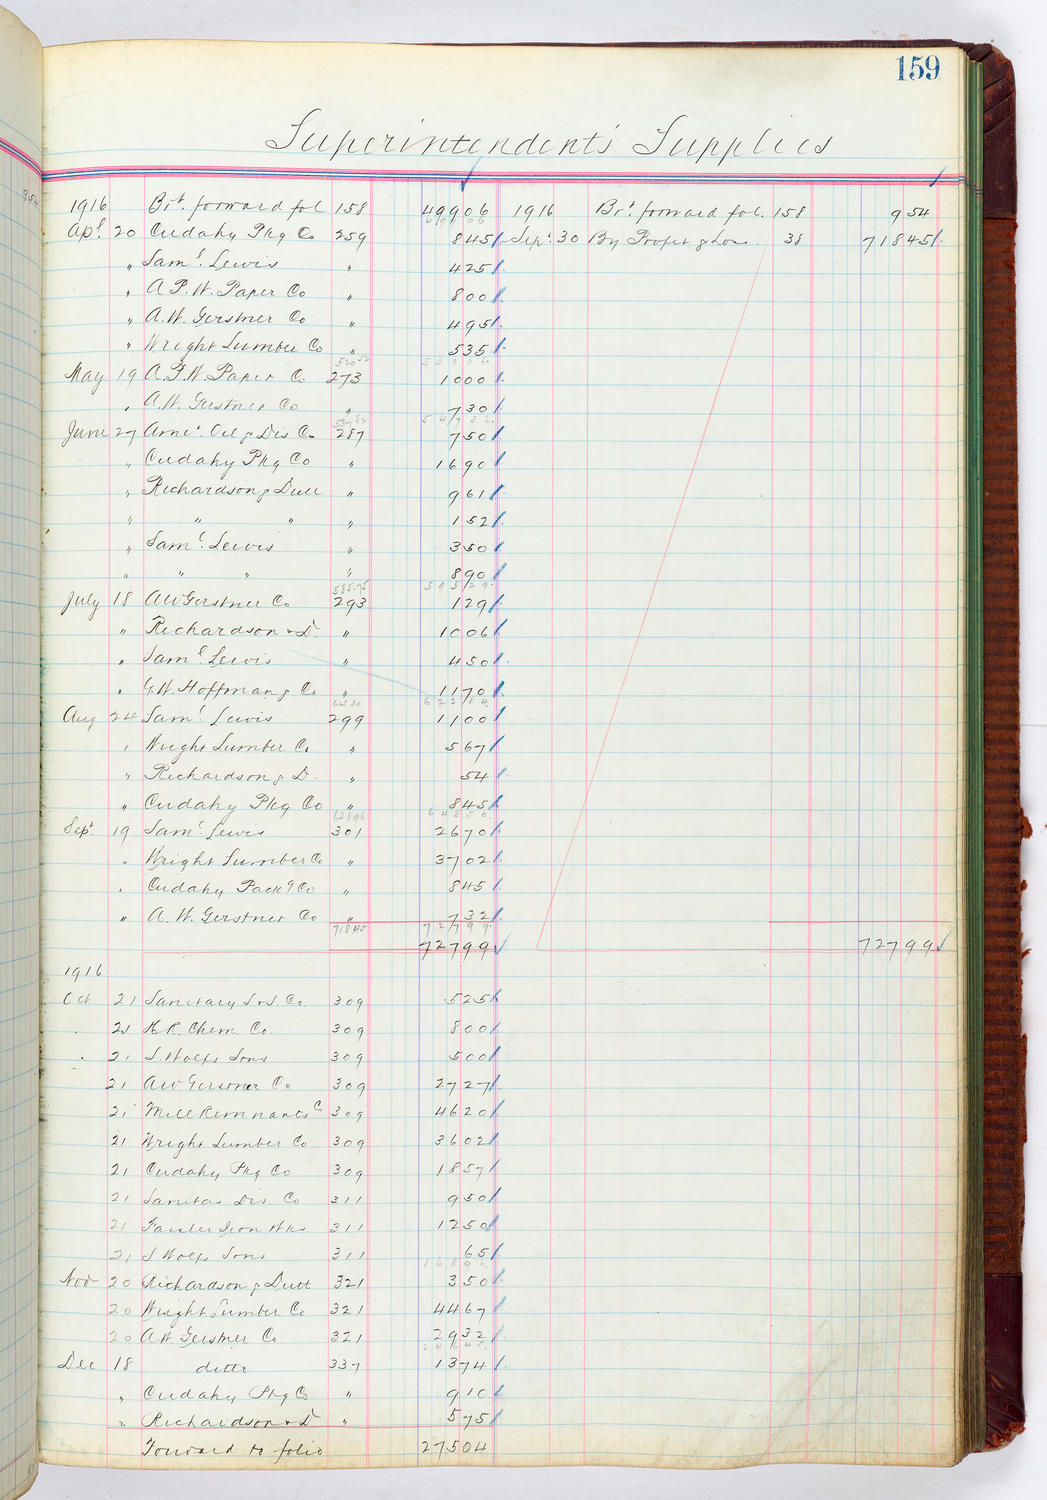 159
Superintendent's Supplies
1916 Brt. forward fol 158 49906 1916 Brt. forward fol. 158 954
49906
Apl. 20 Cudahy Pkg Co 259 845 Sept. 30 By Profit & Loss 38 71845
" Saml. Lewis " 425
" A.P.W. Paper Co " 800
" A.W. Gerstner Co " 495
" Wright Lumber Co " 535
520 52 53006
May 19 A.P.W. Paper Co 273 1000
" A.W. Gerstner Co " 730
537 82 54736
June 27 Amer. Oil & Dis Co. 287 750
" Cudahy Pkg Co " 1690
" Richardson & Dutt " 961
" " " " 152
" Saml. Lewis " 350
" " " " 890
585.75 59529
July 18 AW Gerstner Co 293 129
" Richardson & D. " 1006
" Saml. Lewis " 450
" G.W. Hoffman & Co " 1170
613.30 62284
Aug 24 Saml. Lewis 299 1100
" Wright Lumber Co. " 567
" Richardson & D. " 54
" Cudahy Pkg Co " 845
638.96 64850
Sept. 19 Saml. Lewis 301 2670
" Wright Lumber Co " 3702
" Cudahy Packg Co " 845
" A.W. Gerstner Co " 732
71845 72799
72799 72799
1916
Oct 21 Sanitary Co. 309 525
21 H.R. Chem. Co. 309 800
21 S. Wolfs Sons 309 500
21 AW Gerstner Co 309 2727
21 Mill Remnants C 309 4620
21 Wright Lumber Co 309 3602
21 Cudahy Pkg Co 309 1857
21 Sanitas Dis. Co 311 950
21 Iron Wks 311 1250
21 S Wolfs Sons 311 65
16896
Nov 20 Richardson & Dutt 321 350
20 Wright Lumber Co 321 4467
20 A.W. Gerstner Co 321 2932
24645
Dec 18 ditto 337 1374
" Cudahy Pkg Co " 910
" Richardson & D " 575
Forward to folio 27504